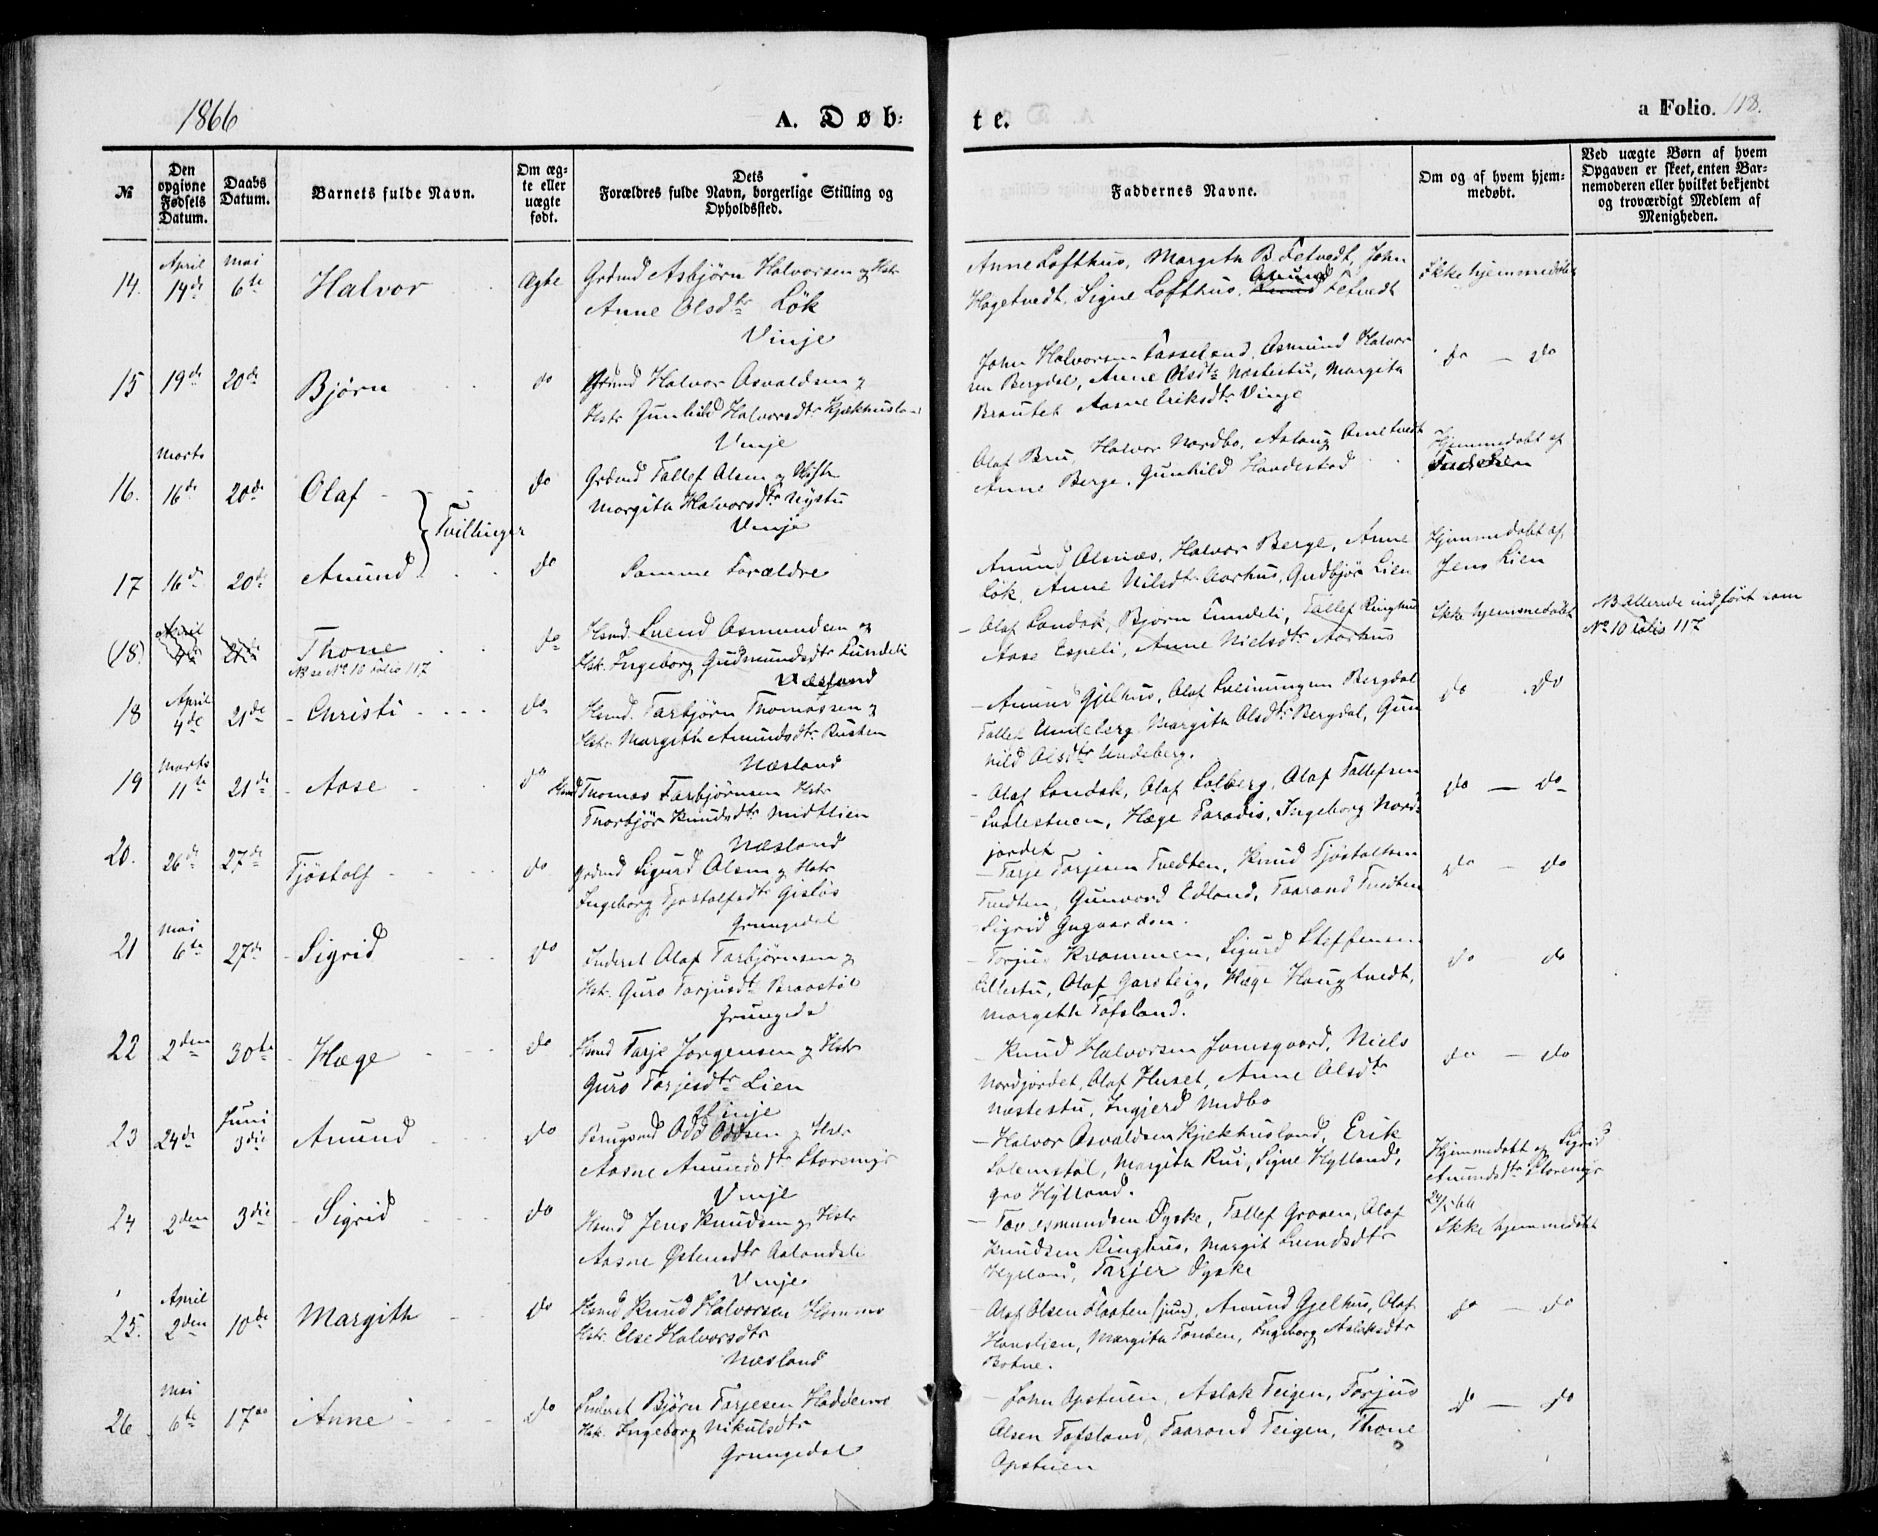 1866
A. Døb-
te.
a Folio. 118.
№
Den opgivne Fødsels Datum.
Daabs Datum.
Barnets fulde Navn.
Om ægte eller uægte født.
Dets Forældres fulde Navn, borgerlige Stilling og Opholdssted.
Faddernes Navne.
Om og af hvem hjemmedøbt.
Ved uægte Børn af hvem Opgaven er skeet, enten Barnemoderen eller hvilket bekjendt og troværdigt Medlem af Menigheden.
14. April 14de Mai 6te Halvor Ægte
Grdmd Asbjørn Halvorsen og Hstr
Anne Olsdtr Løk
Vinje
Anne Lofthus, Margith B. Tetvedt, John
Hagetvedt, Signe Lofthus, Amund Tetvedt
Ikke hjemmedøbt
15 19de 20de Bjørn do
Grdmd Halvor Osvaldsen og
Hstr Gunhild Halvorsdtr Kjækhusland
Vinje
John Halvorsen Tasseland, Osmund Halvor
sen Bergdal, Anne Olsdtr Næstestu, Margith
Brautet Aasne Eriksdtr Vinje
do — do
16. Marts 16de 20de Olaf do
Grdmd Tallef Olsen og Hstr
Margith Halvorsdtr Nystu
Vinje
Olaf Bru, Halvor Nordbo, Aslaug Ametvedt
Anne Berge, Gunhild Haadestad
Hjemmedøbt af
Tvillinger
17 16de 20de Amund do
Samme Forældre
Amund Olsnæs, Halvor Berge, Anne
Løk, Anne Nilsdtr Aarhus, Gudbjør Lien
Hjemmedøbt af
Jens Lien
(18) April 4de 21de Thone do
NB se No 10 Folio 117
Hsmd. Svend Osmundsen og
Hstr. Ingeborg Gudmundsdtr Lundeli
Næsland
Olaf Landsk, Bjørn Lundeli, Tallef Ringhus
Aase Espeli, Anne Nielsdtr Aarhus
Ikke hjemmedøbt
NB Allerede indført som
No 10 Folio 117
18 April 4de 21de Christi do
Hsmd. Tarbjørn Thomassen og
Hstr. Margith Amundsdtr Rusten
Næsland
Amund Gjelhus, Olaf Sveinungsen Bergdal
Tallef Undeberg, Margith Olsdtr Bergdal, Gun
hild Olsdtr Undeberg.
do — do
19 Marts 11te 21de Aase do
Hsmd Thomas Tarbjørnsen Hstr
Thorbjør Knudsdtr Midtlien
Næsland
Olaf Landsk, Olaf Solberg, Olaf Tallefsen
Svalestuen, Hæge Paradis, Ingeborg Nord-
jordet
do — do
20. 26de 27de Tjøstolf do
Grdmd Sigurd Olsen og Hstr
Ingeborg Tjøstolfsdtr Gisløs
Grungedal
Tarje Tarjesen Tvedten, Knud Tjøstolfsen
Tvedten, Gunvord Edland, Taarand Tvedten
Sigrid Gugaarden.
do — do
21 Mai 6te 27de Sigrid do
Inderst Olaf Tarbjørnsen og
Hstr. Guro Torjusdtr Vaaastøl
Grungedal
Torjus Kvammen, Sigurd Steffensen
Aillestu, Olaf Garsteig, Hæge Haugtvedt,
Margith Tofsland.
do — do
22 2den 30te Hæge do
Hsmd Tarje Jørgensen og Hstr
Guro Tarjesdtr Lien
Vinje
Knud Halvorsen Jamsgaard, Niels
Nordjordet, Olaf Huset, Anne Olsdtr
Næstestu, Ingjerd Midbø
do — do
23 24de Juni 3die Amund do
Brugsmd Odd Oddsen og Hstr
Aasne Amundsdtr Storemyr
Vinje
Halvor Osvaldsen Kjækhusland, Erik
Solemstøl, Margith Rui, Signe Hylland,
Gro Hylland.
Hjemmedøbt af Sigrid
Amundsdtr Storemyr
24/5 66
24 2den 3die Sigrid do
Hsmd Jens Knudsen og Hstr
Aasne Østensdtr Aalandsli
Vinje
Tov Osmundsen Dyske, Tallef Groven, Olaf
Knudsen Ringhus, Margit Svendsdtr
Hylland, Tarjer Dyske
Ikke hjemmedøbt
25. April 2den 10de Margith do
Hsmd Knud Halvorsen Hommo
Hstr. Else Halvorsdtr
Næsland
Olaf Olsen Flaaten (jun), Amund Gjelhus, Olaf
Hanslien, Margith Tonsen, Ingeborg Aslaksdtr
Botne.
do — do
26 Mai 6te 17de Anne do
Inderst Bjørn Tarjesen Haddeme
Hstr. Ingeborg Nikulsdtr
Grungedal
John Opstuen, Aslak Teigen, Torjus
Olsen Tofsland, Taarand Teigen, Thone
Opstuen
do — do